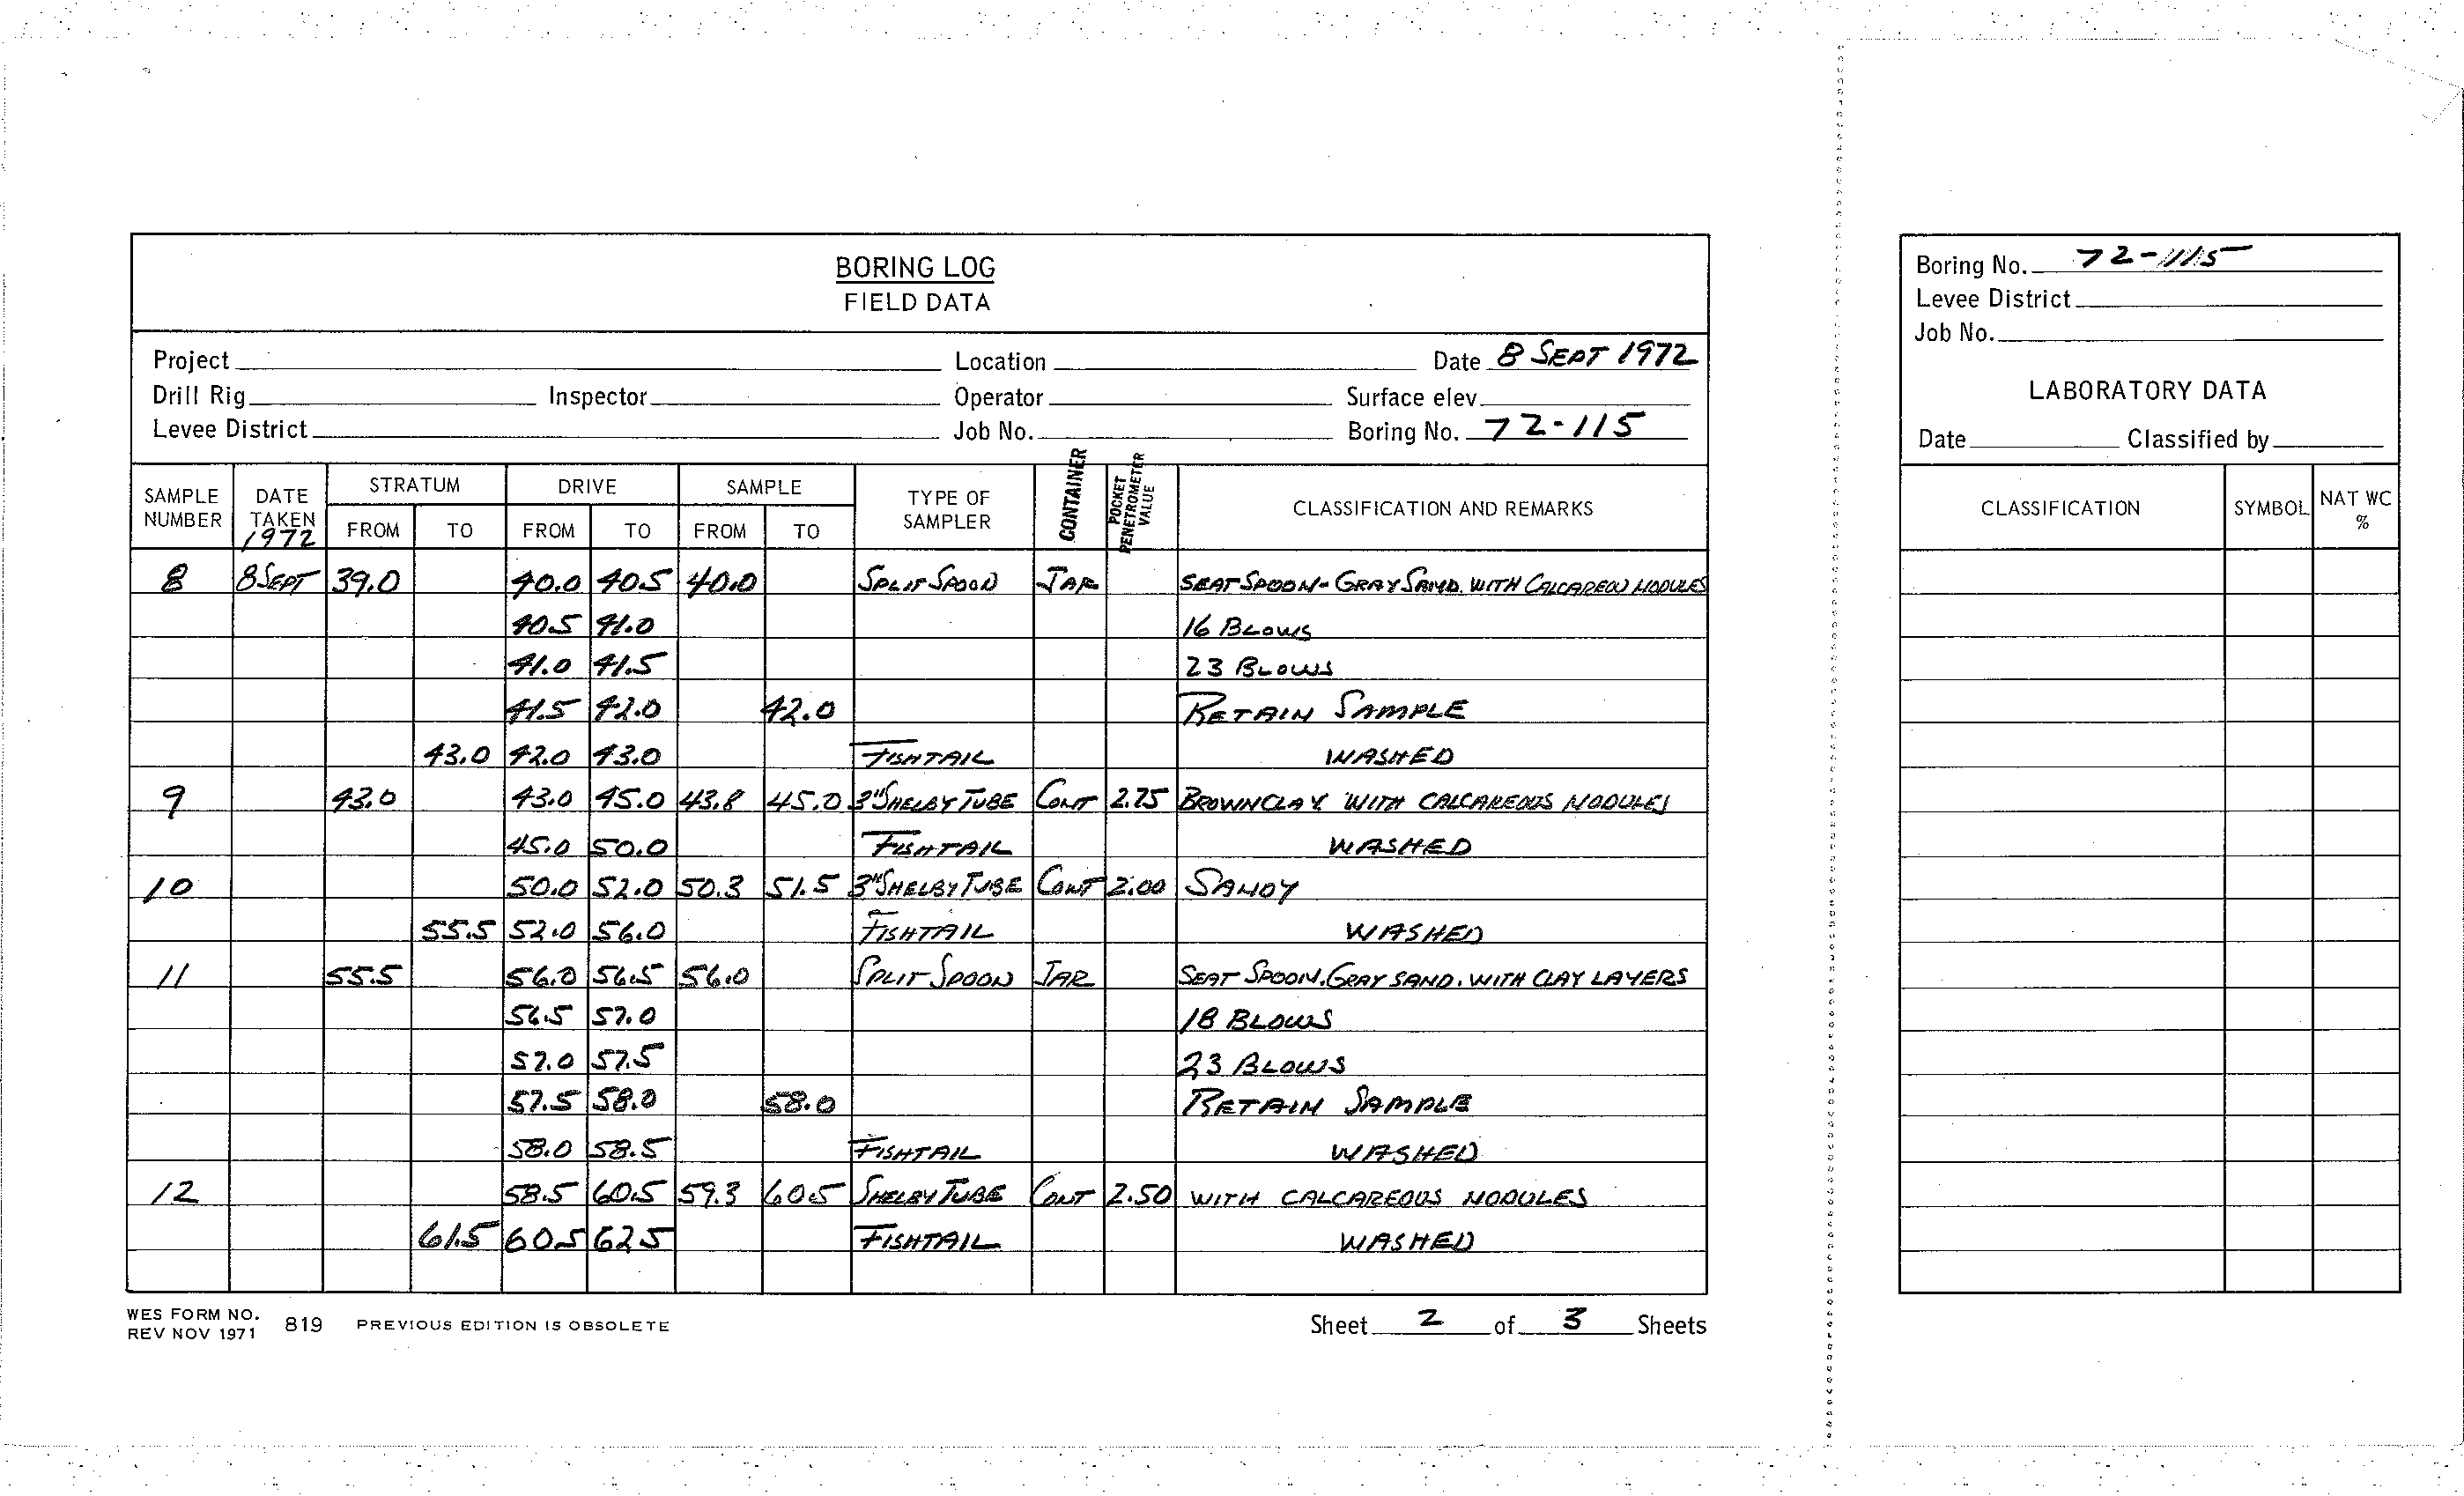 BORING LOG
FIELD DATA
Project Location Date 8 SEPT 1972
Drill Rig Inspector Operator Surface elev.
Levee District Job No. Boring No. 72-115
SAMPLE NUMBER DATE TAKEN 1972 STRATUM FROM TO DRIVE FROM TO SAMPLE FROM TO TYPE OF SAMPLER CONTAINER POCKET PENETROMETER VALUE CLASSIFICATION AND REMARKS
8 8 SEPT 39.0 40.0 40.5 40.0 SPLIT SPOON JAR SEAT SPOON - GRAY SAND. WITH CALCAREOU NODULES
40.5 41.0 16 BLOWS
41.0 41.5 23 BLOWS
41.5 42.0 42.0 RETAIN SAMPLE
43.0 42.0 43.0 FISHTAIL WASHED
9 43.0 43.0 45.0 43.8 45.0 3" SHELBY TUBE CONT 2.75 BROWN CLAY WITH CALCAREOUS NODULES
45.0 50.0 FISHTAIL WASHED
10 50.0 52.0 50.3 51.5 3" SHELBY TUBE CONT 2.00 SANDY
55.5 52.0 56.0 FISHTAIL WASHED
11 55.5 56.0 56.5 56.0 SPLIT SPOON JAR SEAT SPOON. GRAY SAND. WITH CLAY LAYERS
56.5 57.0 18 BLOWS
57.0 57.5 23 BLOWS
57.5 58.0 58.0 RETAIN SAMPLE
58.0 58.5 FISHTAIL WASHED
12 58.5 60.5 59.3 60.5 SHELBY TUBE CONT 2.50 WITH CALCAREOUS NODULES
61.5 60.5 62.5 FISHTAIL WASHED
WES FORM NO. 819 PREVIOUS EDITION IS OBSOLETE Sheet 2 of 3 Sheets
REV NOV 1971
Boring No. 72-115
Levee District
Job No.
LABORATORY DATA
Date Classified by
CLASSIFICATION SYMBOL NAT WC %